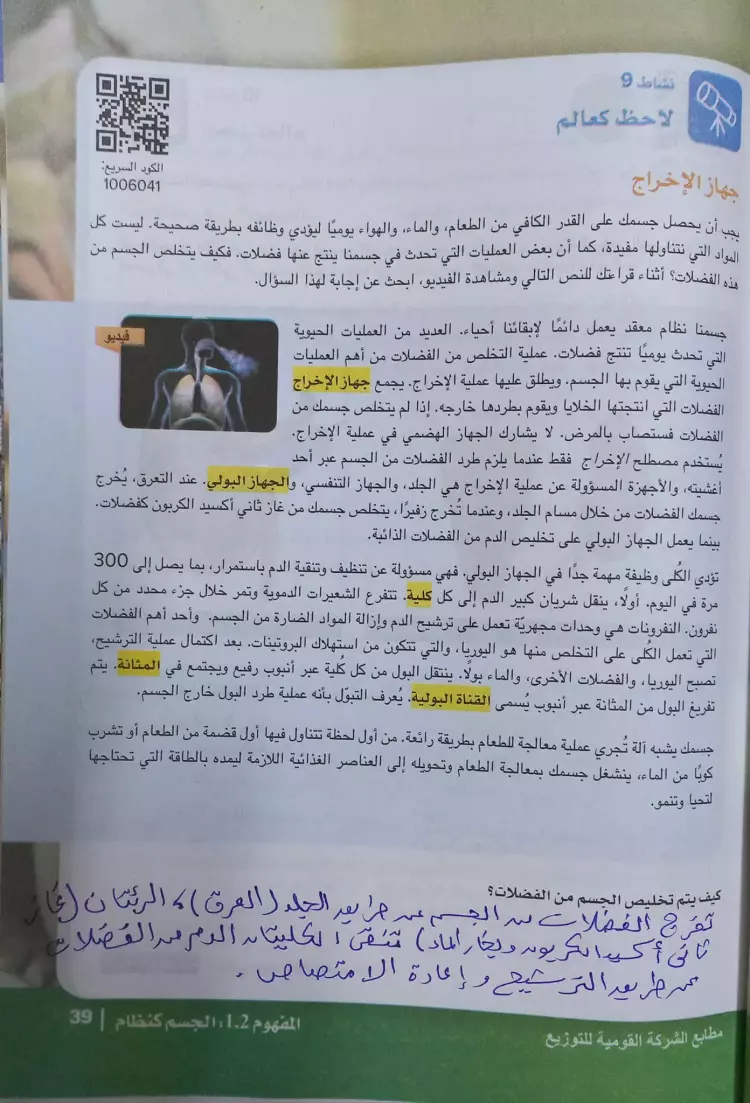 نشاط 9
لاحظ كعالم
الكود السريع:
1006041
جهاز الإخراج
يجب أن يحصل جسمك على القدر الكافي من الطعام، والماء، والهواء يوميًا ليؤدي وظائفه بطريقة صحيحة. ليست كل
المواد التي نتناولها مفيدة، كما أن بعض العمليات التي تحدث في جسمنا ينتج عنها فضلات. فكيف يتخلص الجسم من
هذه الفضلات؟ أثناء قراءتك للنص التالي ومشاهدة الفيديو، ابحث عن إجابة لهذا السؤال.
فيديو
جسمنا نظام معقد يعمل دائمًا لإبقائنا أحياء. العديد من العمليات الحيوية
التي تحدث يوميًا تنتج فضلات. عملية التخلص من الفضلات من أهم العمليات
الحيوية التي يقوم بها الجسم. ويطلق عليها عملية الإخراج. يجمع جهاز الإخراج
الفضلات التي انتجتها الخلايا ويقوم بطردها خارجه. إذا لم يتخلص جسمك من
الفضلات فستصاب بالمرض. لا يشارك الجهاز الهضمي في عملية الإخراج.
يُستخدم مصطلح الإخراج فقط عندما يلزم طرد الفضلات من الجسم عبر أحد
أغشيته، والأجهزة المسؤولة عن عملية الإخراج هي الجلد، والجهاز التنفسي، والجهاز البولي. عند التعرق، يُخرج
جسمك الفضلات من خلال مسام الجلد، وعندما تُخرج زفيرًا، يتخلص جسمك من غاز ثاني أكسيد الكربون كفضلات.
بينما يعمل الجهاز البولي على تخليص الدم من الفضلات الذائبة.
تؤدي الكُلى وظيفة مهمة جدًا في الجهاز البولي. فهي مسؤولة عن تنظيف وتنقية الدم باستمرار، بما يصل إلى 300
مرة في اليوم. أولًا، ينقل شريان كبير الدم إلى كل كلية. تتفرع الشعيرات الدموية وتمر خلال جزء محدد من كل
نفرون. النفرونات هي وحدات مجهريّة تعمل على ترشيح الدم وإزالة المواد الضارة من الجسم. وأحد أهم الفضلات
التي تعمل الكُلى على التخلص منها هو اليوريا، والتي تتكون من استهلاك البروتينات. بعد اكتمال عملية الترشيح،
تصبح اليوريا، والفضلات الأخرى، والماء بولًا. ينتقل البول من كل كُلية عبر أنبوب رفيع ويجتمع في المثانة. يتم
تفريغ البول من المثانة عبر أنبوب يُسمى القناة البولية. يُعرف التبوّل بأنه عملية طرد البول خارج الجسم.
جسمك يشبه آلة تُجري عملية معالجة للطعام بطريقة رائعة. من أول لحظة تتناول فيها أول قضمة من الطعام أو تشرب
كوبًا من الماء، ينشغل جسمك بمعالجة الطعام وتحويله إلى العناصر الغذائية اللازمة ليمده بالطاقة التي تحتاجها
لتحيا وتنمو.
كيف يتم تخليص الجسم من الفضلات؟
تخرج الفضلات من الجسم عن طريق الجلد (العرق)، الرئتان (غاز
ثاني أكسيد الكربون وبخار الماء) تنقي الكليتان الدم من الفضلات
عن طريق الترشيح وإعادة الامتصاص.
مطابع الشركة القومية للتوزيع
المفهوم 1.2: الجسم كنظام | 39